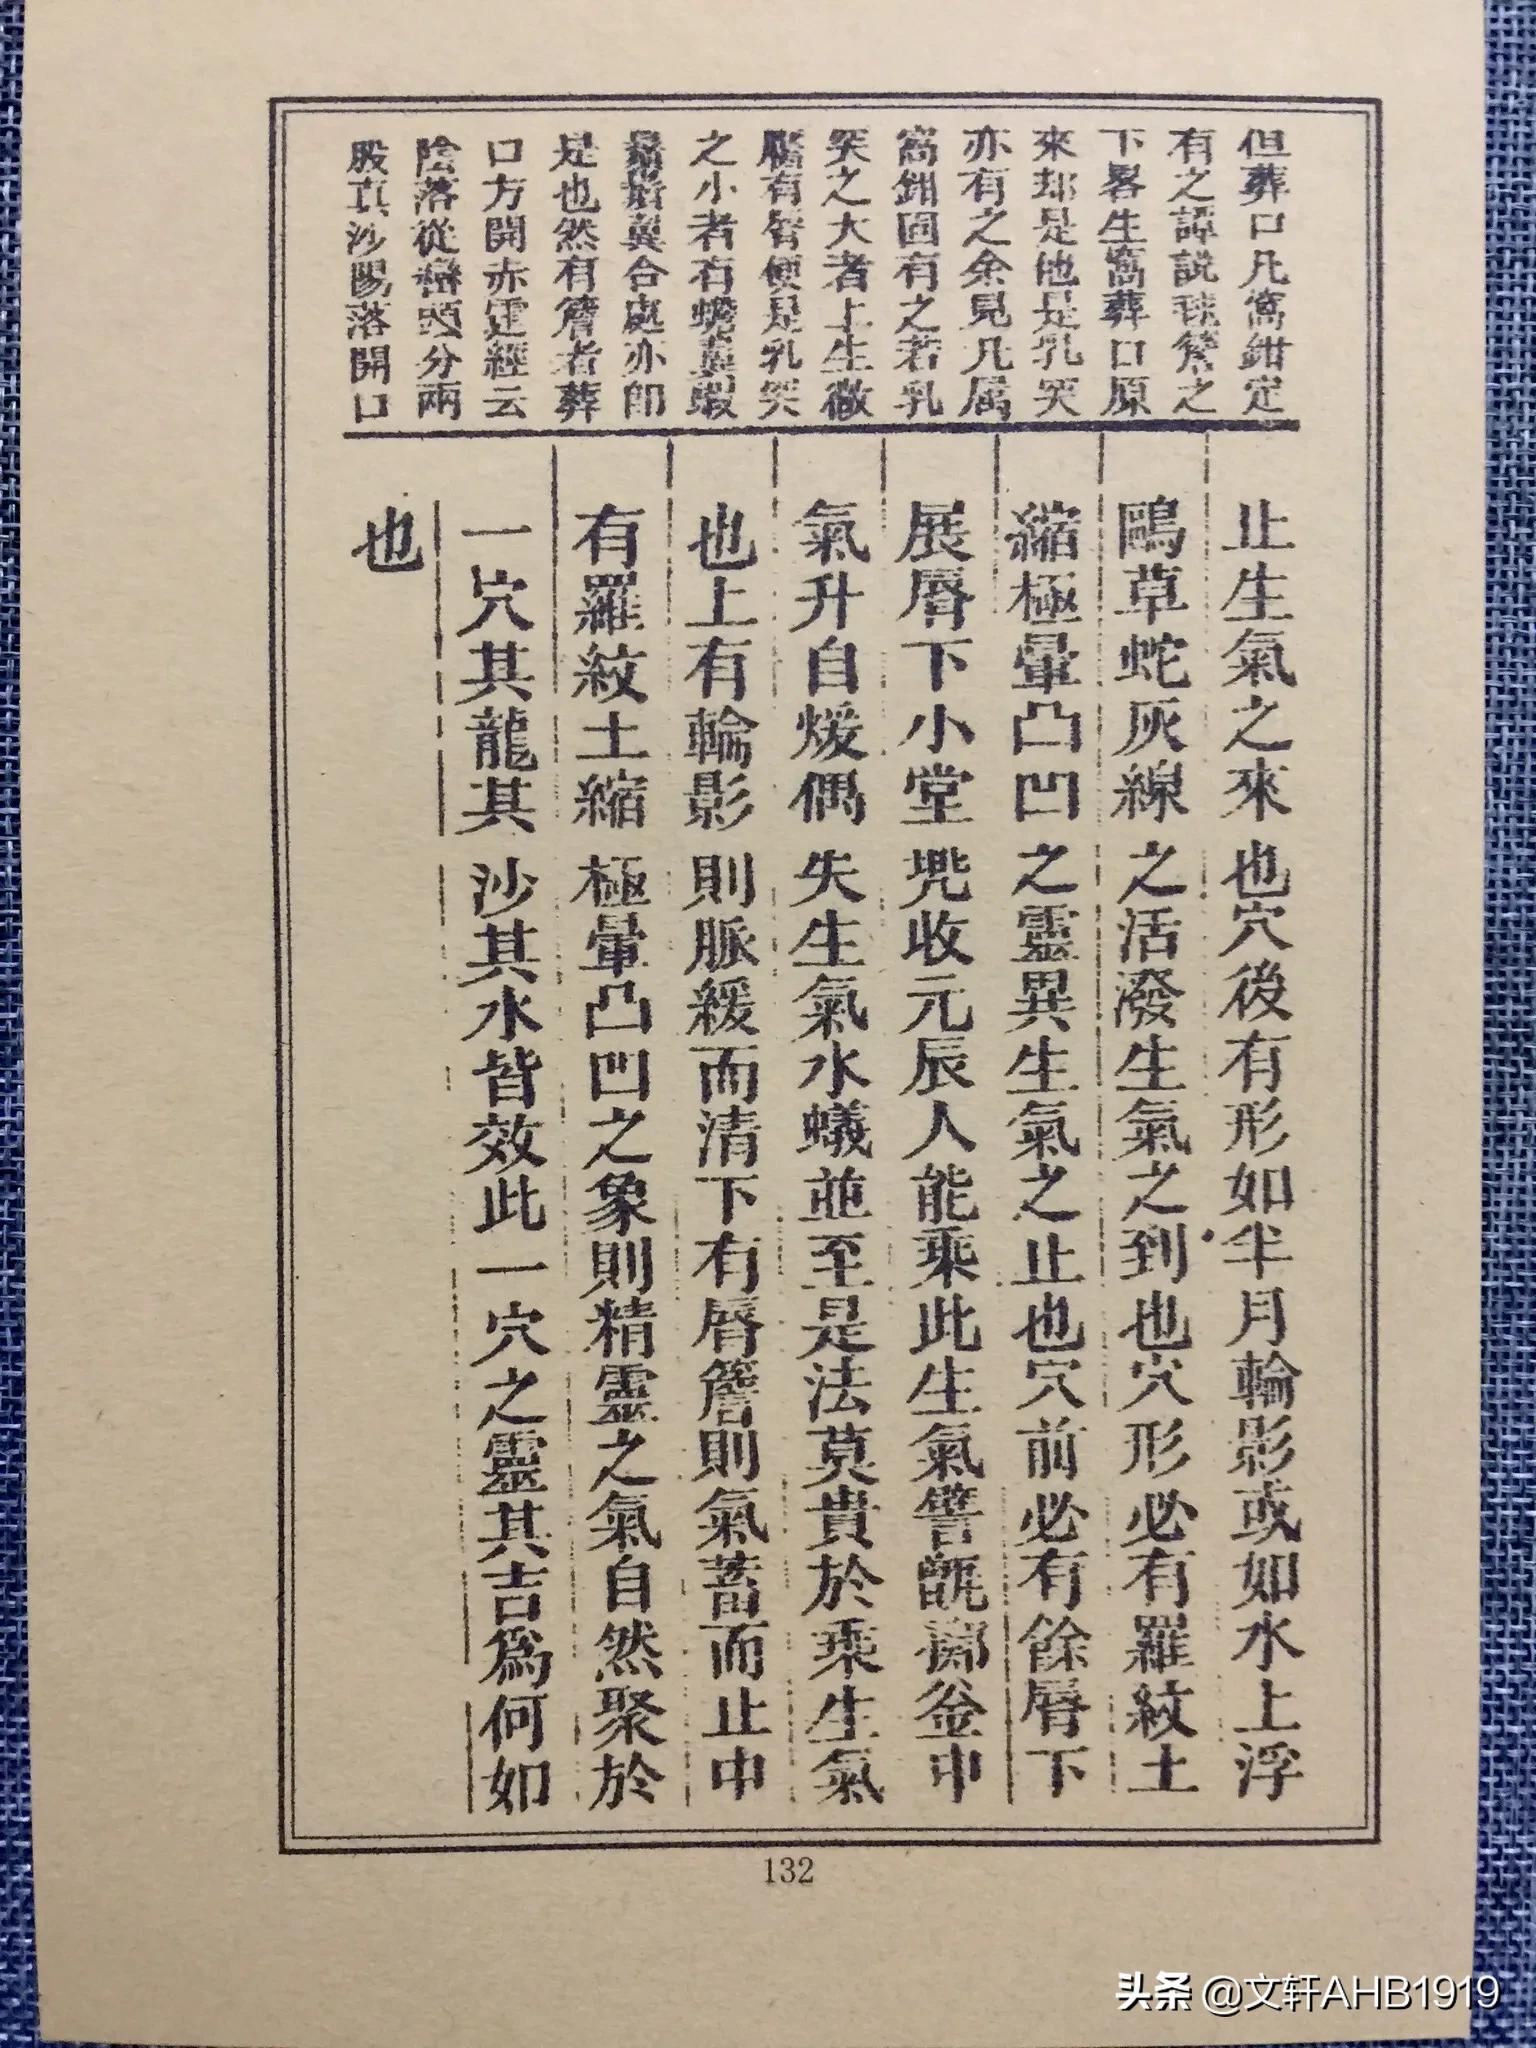 但葬口凡窩鉗定
有之譚説毬簷之
下畧生窩葬口原
來却是他是乳突
亦有之余見凡属
窩鉗固有之若乳
突之大者上生微
有唇便是乳突
之小者有蟾翼蝦
翼合處亦卽
是也然有簷者葬
口方開赤霆經云
陰落從頭分兩
股真沙陽落開口
止生氣之來也穴後有形如半月輪影或如水上浮
鷗草蛇灰線之活潑生氣之到也穴形必有羅紋土
縮極暈凸凹之靈異生氣之止也穴前必有餘唇下
展唇下小堂兠收元辰人能乘此生氣譬甑擲釡中
氣升自煖偶失生氣水蟻並至是法莫貴於乘生氣
也上有輪影則脈緩而清下有唇簷則氣蓄而止中
有羅紋土縮極暈凸凹之象則精靈之氣自然聚於
一穴其龍其沙其水皆效此一穴之靈其吉爲何如
也
132
头条 @文轩AHB1919